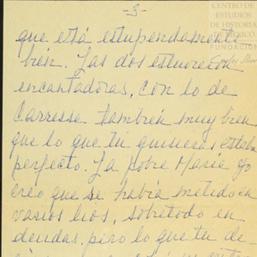 - 3 -
CENTRO DE
ESTUDIOS
DE HISTORIA
DE MÉXICO
FUNDACIÓN
que está estupendamente
bien. Las dos estuvieron
encantadoras, con lo de
Carresse también muy bien
que lo que tú quisieras estaba
perfecto. La pobre Marie yo
creo que se había metido en
varios líos, sobretodo en
deudas, pero lo que tu de-